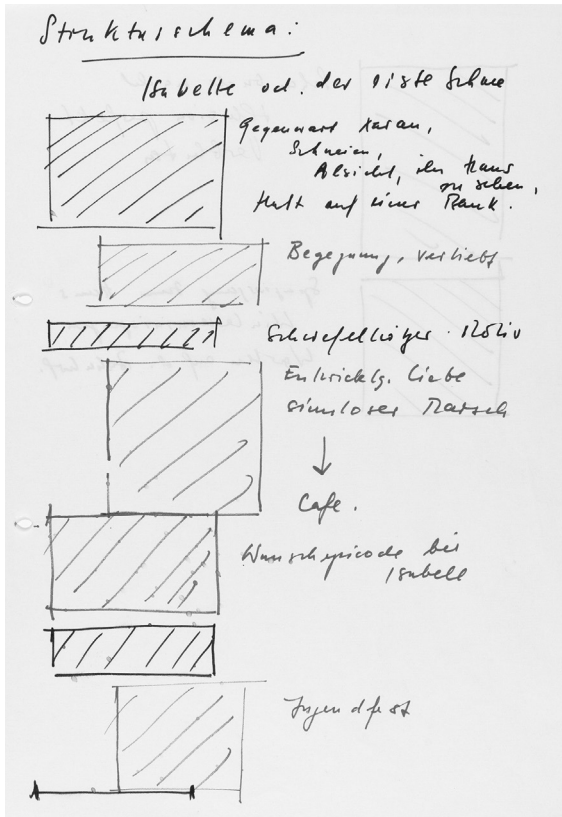 Strukturschema:
Isabelle od. der erste Schnee
Gegenwart
Schneien,
Absicht, ihr Haus
zu sehen,
Halt auf einer Bank.
Begegnung, verliebt
Schwefelhölzer-Motiv
Entwicklg. Liebe
sinnloser Marsch
Cafe.
Wunschepisode bei
Isabell
Jugendfest